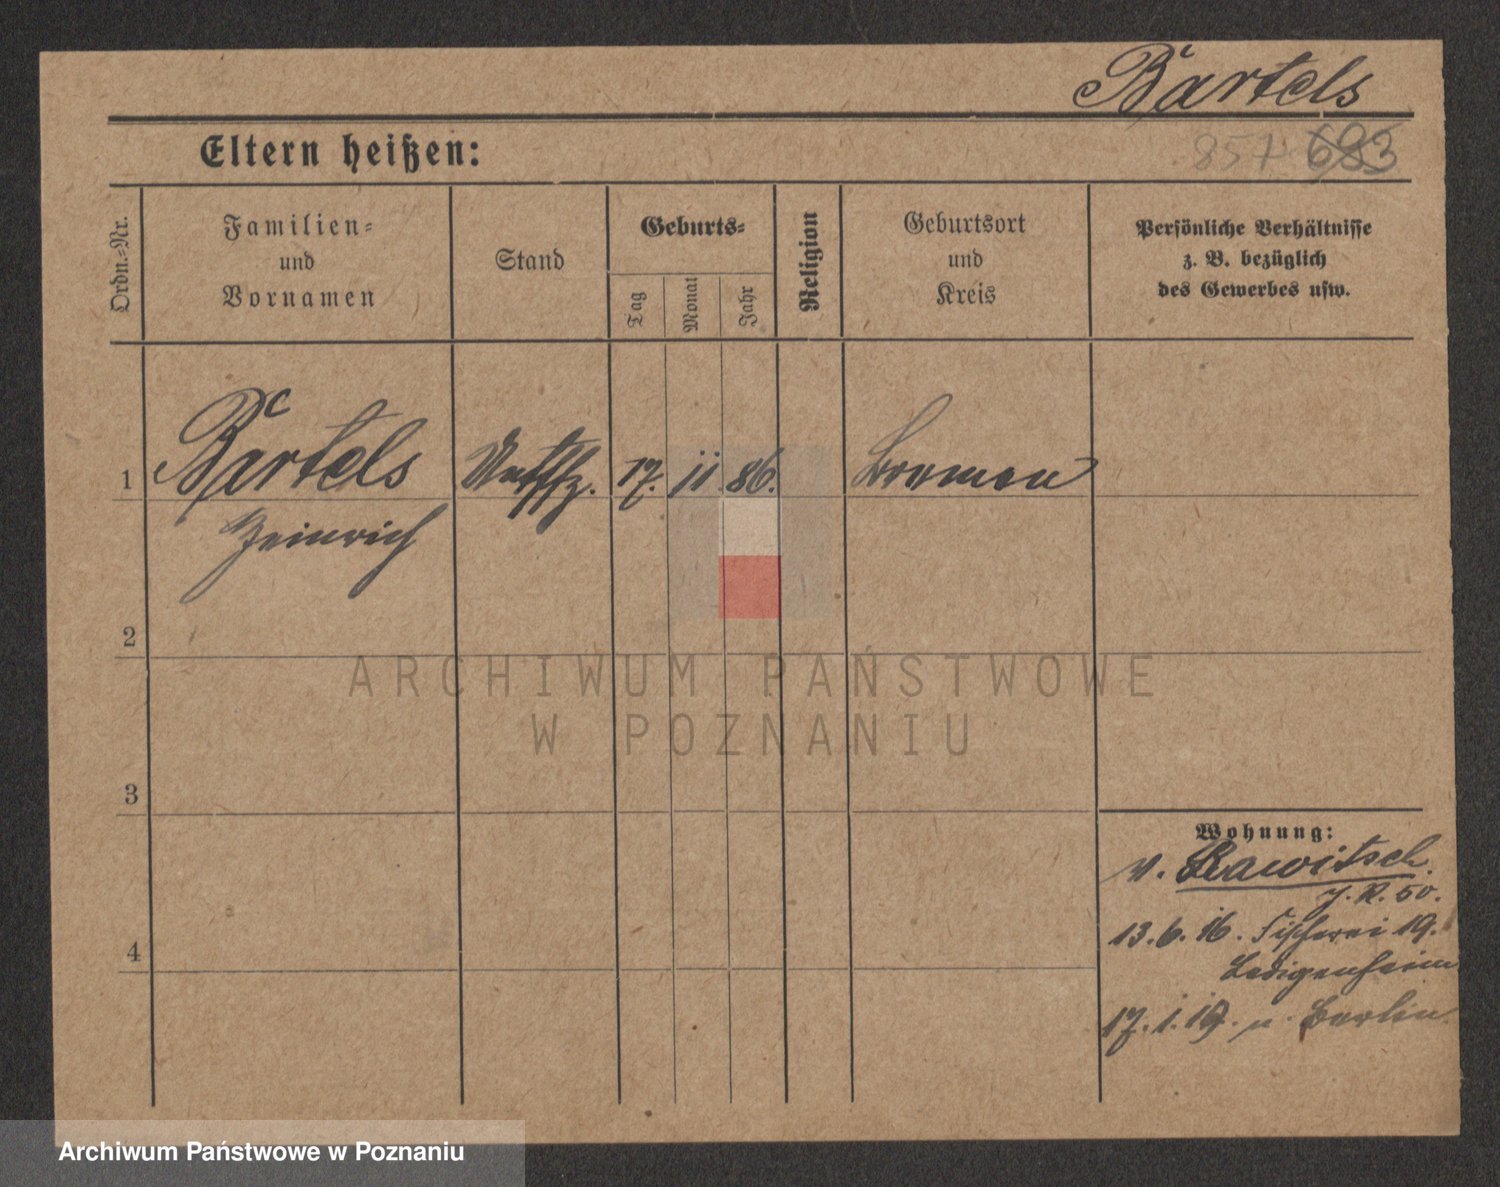 Bartels
Eltern heißen:
857 683
Ordn.-Nr.
Familien-
und
Vornamen
Stand
Geburts-
Tag
Monat
Jahr
Religion
Geburtsort
und
Kreis
Persönliche Verhältnisse
z. B. bezüglich
des Gewerbes usw.
1
Bartels
17. 11. 86.
Bremen
Heinrich
2
ARCHIWUM PAŃSTWOWE
W POZNANIU
3
Wohnung:
v. Rawitsch.
J. R. 50.
13. 6. 16. Fischerei 19.
Ledigenheim
4
17. 1. 19. n. Berlin
Archiwum Państwowe w Poznaniu